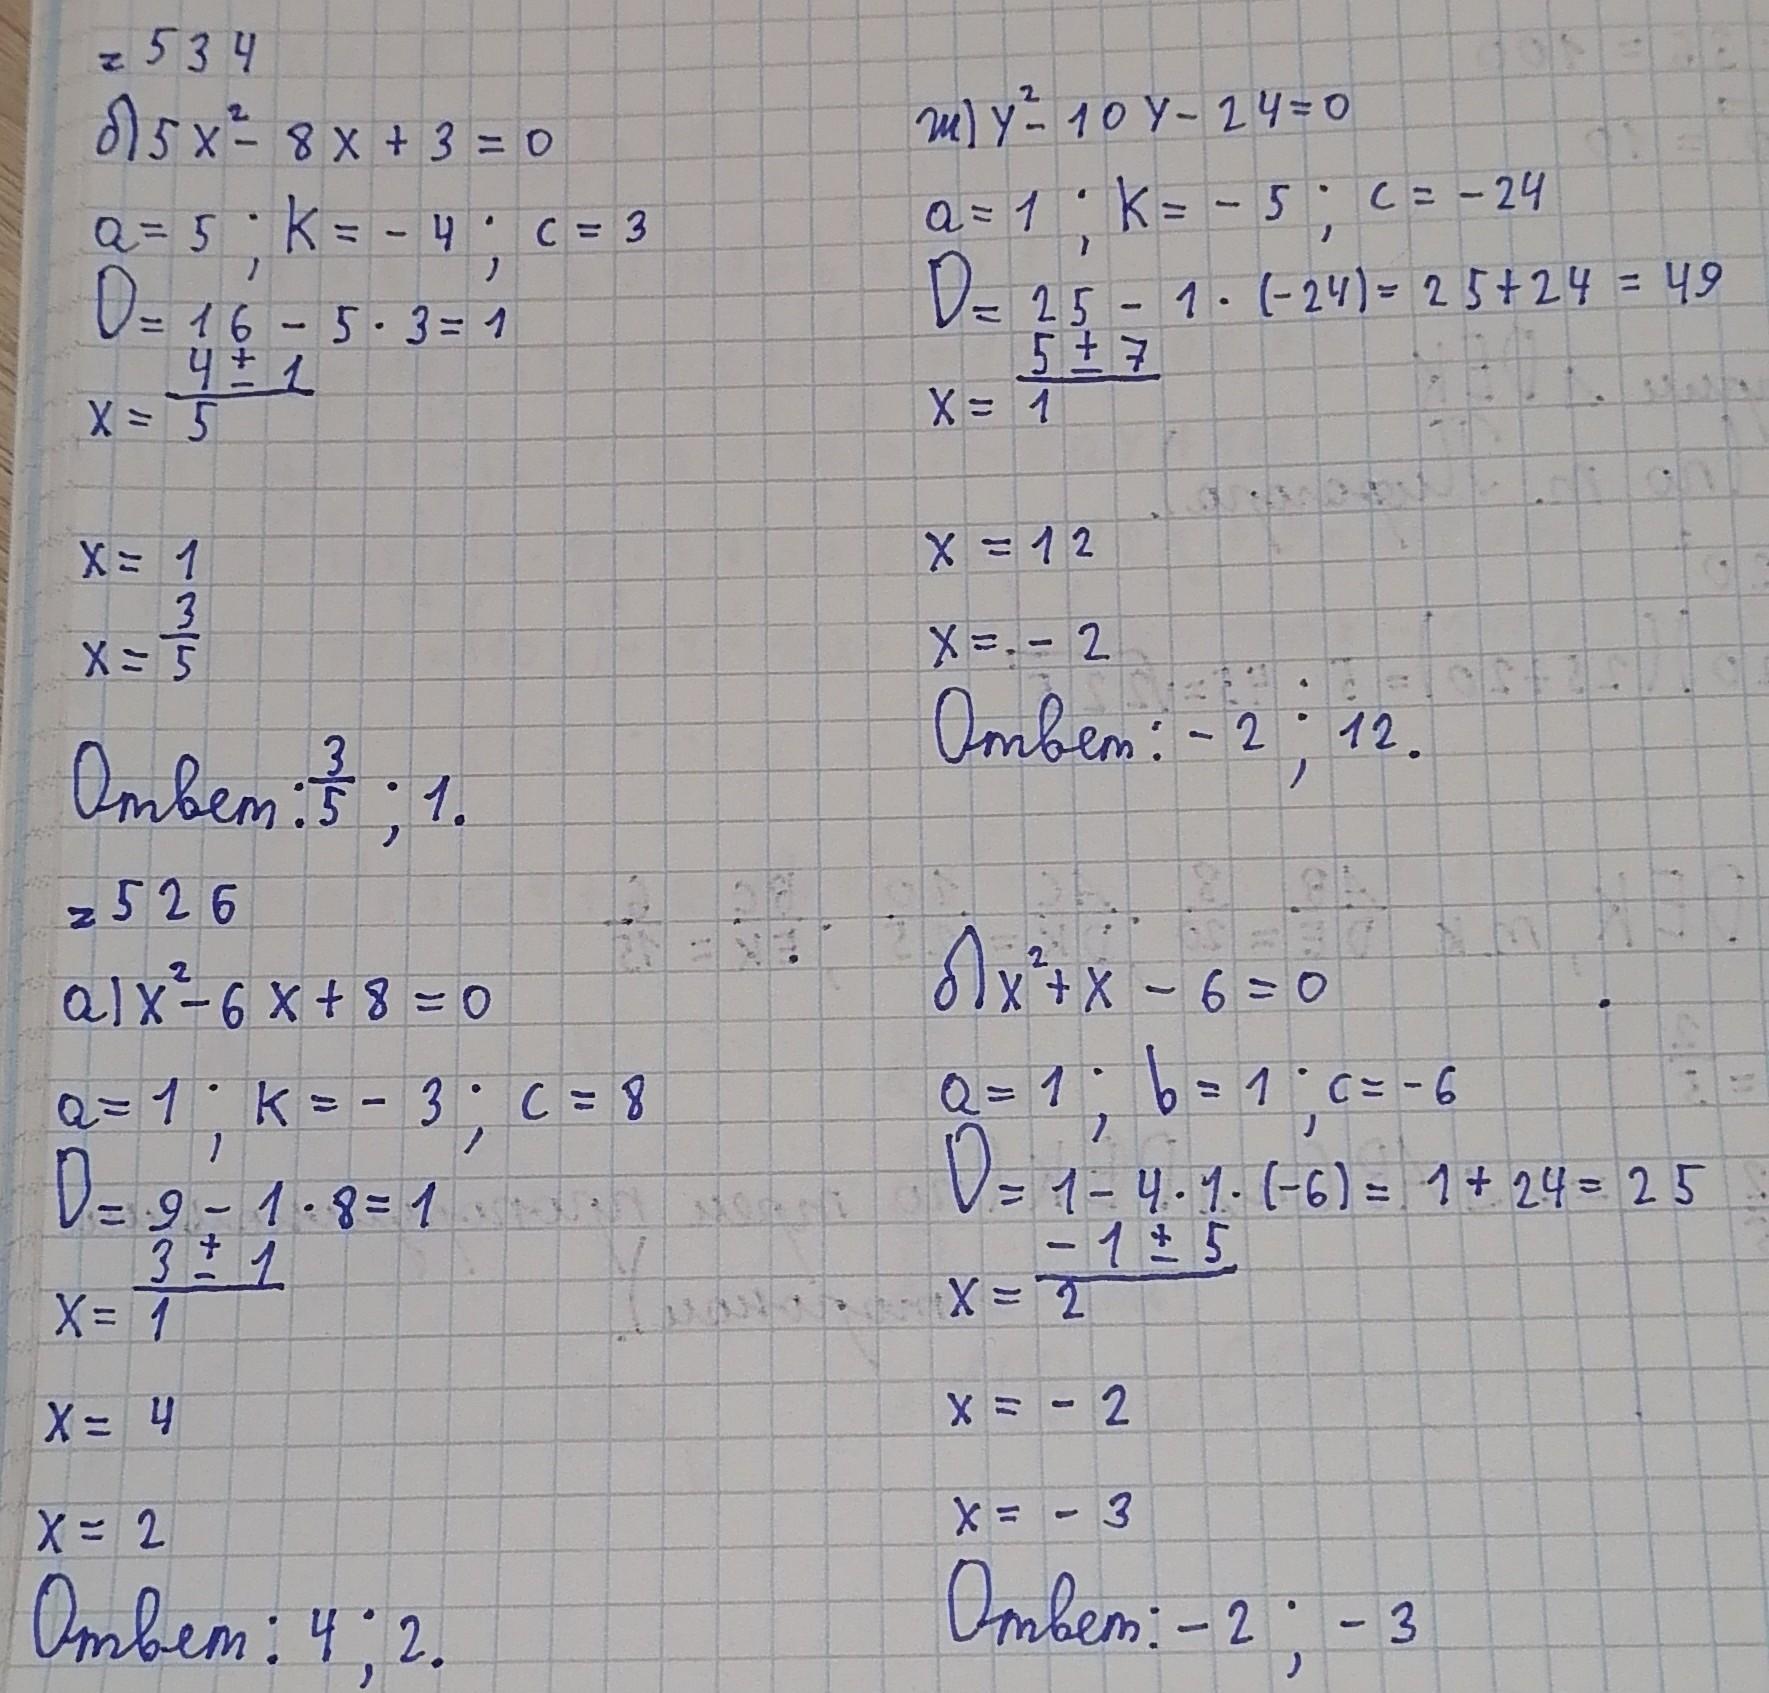 = 534
б) 5x² - 8x + 3 = 0
a = 5 ; k = - 4 ; c = 3
D = 16 - 5 · 3 = 1
x = (4 ± 1)/5
x = 1
x = 3/5
Ответ: 3/5 ; 1.
ж) y² - 10y - 24 = 0
a = 1 ; k = - 5 ; c = - 24
D = 25 - 1 · (-24) = 25 + 24 = 49
x = (5 ± 7)/1
x = 12
x = - 2
Ответ: - 2 ; 12.
= 526
а) x² - 6x + 8 = 0
a = 1 ; k = - 3 ; c = 8
D = 9 - 1 · 8 = 1
x = (3 ± 1)/1
x = 4
x = 2
Ответ: 4 ; 2.
б) x² + x - 6 = 0
a = 1 ; b = 1 ; c = - 6
D = 1 - 4 · 1 · (-6) = 1 + 24 = 25
x = (- 1 ± 5)/2
x = - 2
x = - 3
Ответ: - 2 ; - 3